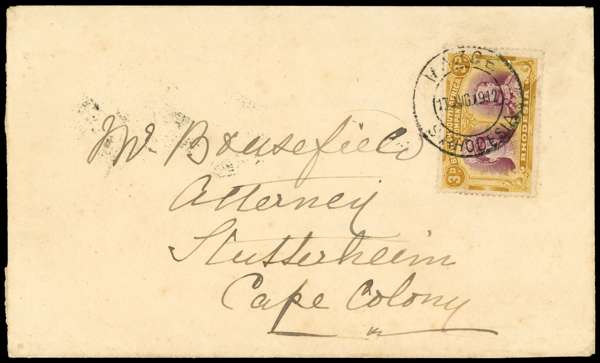 Mr Bousefield
Attorney
Stutterheim
Cape Colony
MAZOE
17 AUG 1912
3d
RHODESIA